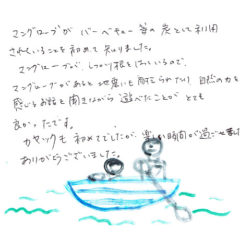 マングローブが バーベキュー 等の炭として利用
されていることを初めて知りました。
マングローブが しっかり根をはっているので、
マングローブがあると地震にも耐えられたり 自然の力を
感じるお話を聞きながら 遊べたことが とても
良かったです。
カヤックも 初めてでしたが、楽しい時間が過ごせました
ありがとうございました。